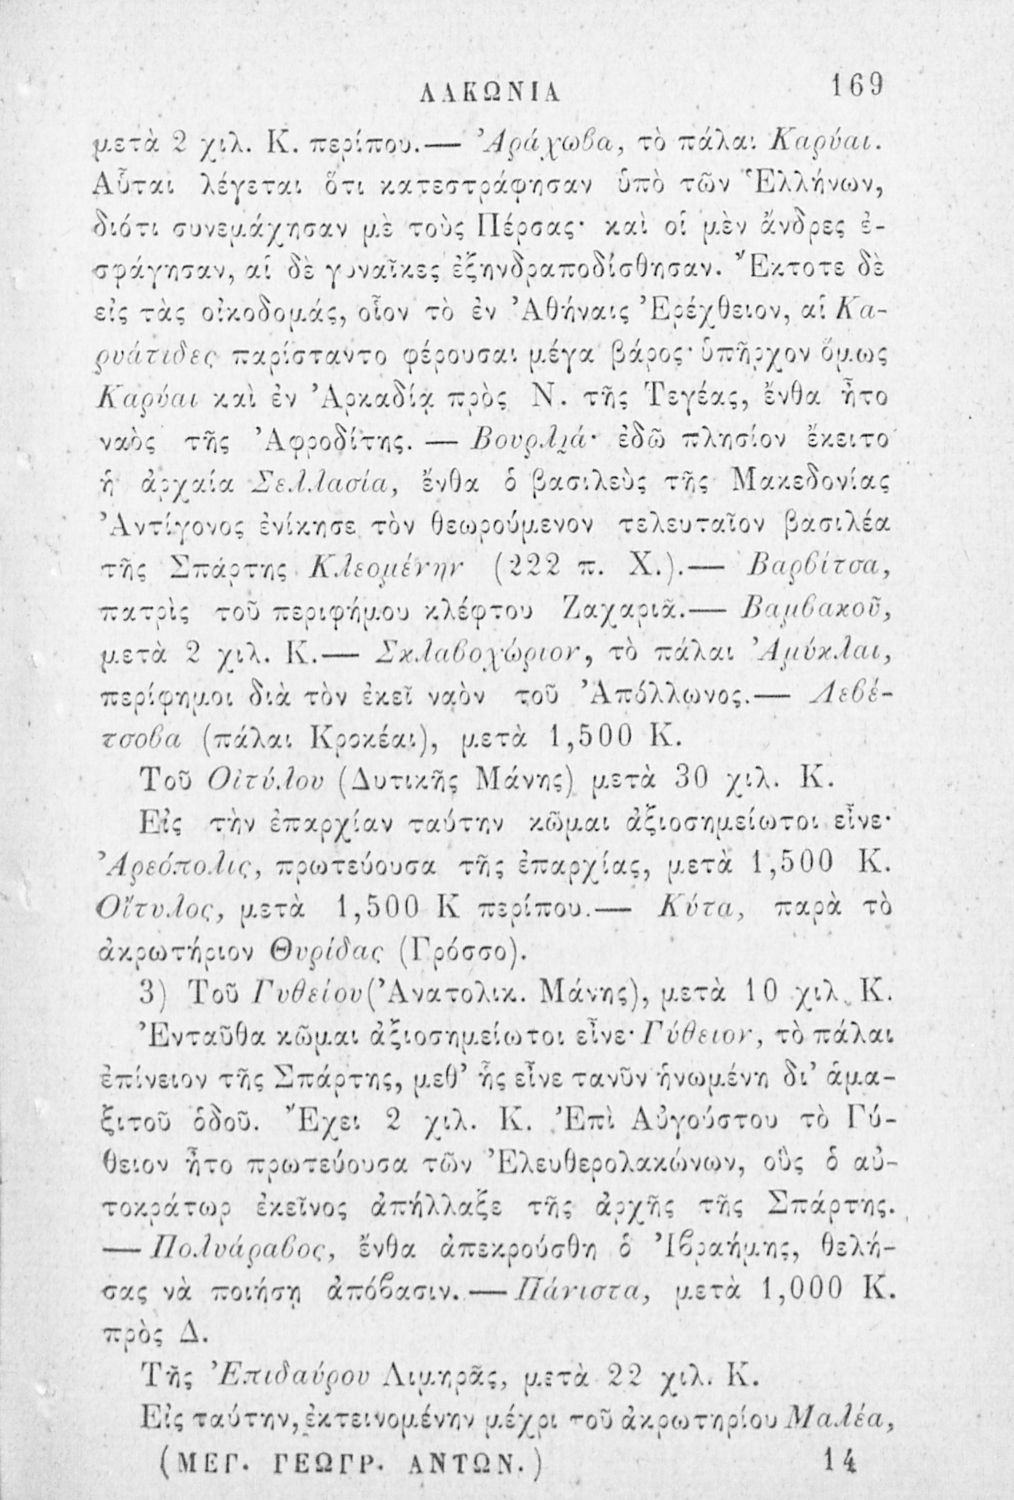 ΛΑΚΩΝΙΑ 169
μετὰ 2 χιλ. Κ. περίπου.— Ἀράχωβα, τὸ πάλαι Καρύαι.
Αὗται λέγεται ὅτι κατεστράφησαν ὑπὸ τῶν Ἑλλήνων,
διότι συνεμάχησαν μὲ τοὺς Πέρσας· καὶ οἱ μὲν ἄνδρες ἐ-
σφάγησαν, αἱ δὲ γυναῖκες ἐξηνδραποδίσθησαν. Ἔκτοτε δὲ
εἰς τὰς οἰκοδομάς, οἷον τὸ ἐν Ἀθήναις Ἐρέχθειον, αἱ Κα-
ρυάτιδες παρίσταντο φέρουσαι μέγα βάρος· ὑπῆρχον ὅμως
Καρύαι καὶ ἐν Ἀρκαδίᾳ πρὸς Ν. τῆς Τεγέας, ἔνθα ἦτο
ναὸς τῆς Ἀφροδίτης. — Βουρλιά· ἐδῶ πλησίον ἔκειτο
ἡ ἀρχαία Σελλασία, ἔνθα ὁ βασιλεὺς τῆς Μακεδονίας
Ἀντίγονος ἐνίκησε τὸν θεωρούμενον τελευταῖον βασιλέα
τῆς Σπάρτης Κλεομένην (222 π. Χ.).— Βαρβίτσα,
πατρὶς τοῦ περιφήμου κλέφτου Ζαχαριᾶ.— Βαμβακοῦ,
μετὰ 2 χιλ. Κ.— Σκλαβοχώριον, τὸ πάλαι Ἀμύκλαι,
περίφημοι διὰ τὸν ἐκεῖ ναὸν τοῦ Ἀπόλλωνος.— Λεβέ-
τσοβα (πάλαι Κροκέαι), μετὰ 1,500 Κ.
Τοῦ Οἰτύλου (Δυτικῆς Μάνης) μετὰ 30 χιλ. Κ.
Εἰς τὴν ἐπαρχίαν ταύτην κῶμαι ἀξιοσημείωτοι εἶνε·
Ἀρεόπολις, πρωτεύουσα τῆς ἐπαρχίας, μετὰ 1,500 Κ.
Οἴτυλος, μετὰ 1,500 Κ περίπου.— Κύτα, παρὰ τὸ
ἀκρωτήριον Θυρίδας (Γρόσσο).
3) Τοῦ Γυθείου (Ἀνατολικ. Μάνης), μετὰ 10 χιλ. Κ.
Ἐνταῦθα κῶμαι ἀξιοσημείωτοι εἶνε· Γύθειον, τὸ πάλαι
ἐπίνειον τῆς Σπάρτης, μεθ' ἧς εἶνε τανῦν ἡνωμένη δι' ἁμα-
ξιτοῦ ὁδοῦ. Ἔχει 2 χιλ. Κ. Ἐπὶ Αὐγούστου τὸ Γύ-
θειον ἦτο πρωτεύουσα τῶν Ἐλευθερολακώνων, οὓς ὁ αὐ-
τοκράτωρ ἐκεῖνος ἀπήλλαξε τῆς ἀρχῆς τῆς Σπάρτης.
— Πολυάραβος, ἔνθα ἀπεκρούσθη ὁ Ἰβραήμης, θελή-
σας νὰ ποιήσῃ ἀπόβασιν.— Πάνιστα, μετὰ 1,000 Κ.
πρὸς Δ.
Τῆς Ἐπιδαύρου Λιμηρᾶς, μετὰ 22 χιλ. Κ.
Εἰς ταύτην, ἐκτεινομένην μέχρι τοῦ ἀκρωτηρίου Μαλέα,
(ΜΕΓ. ΓΕΩΓΡ. ΑΝΤΩΝ.) 14